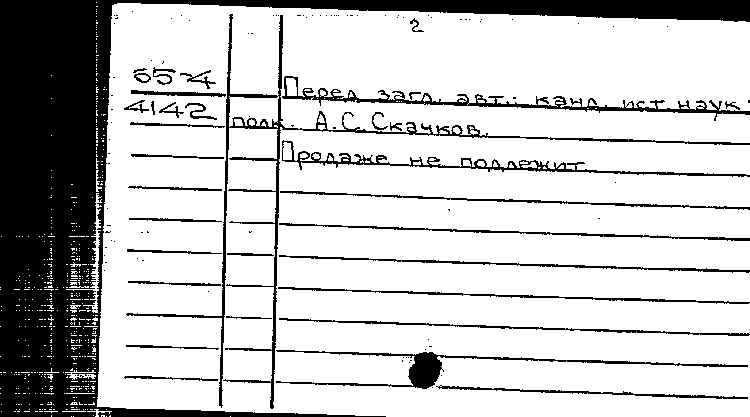 2
55-4
Перед загл. авт.: канд. ист. наук
4142
полк. А.С. Скачков.
Продаже не подлежит.